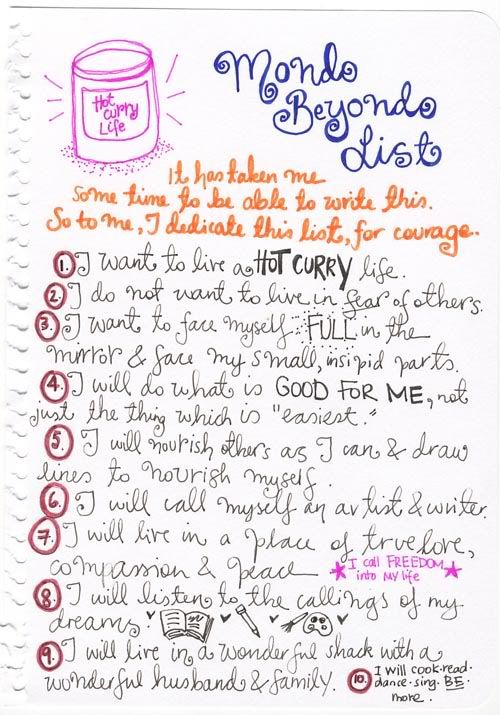 Hot
curry
Life
Mondo
Beyondo
List
It has taken me
some time to be able to write this.
So to me, I dedicate this list, for courage.
1. I want to live a HOT CURRY life.
2. I do not want to live in fear of others.
3. I want to face myself FULL in the
mirror & face my small, insipid parts.
4. I will do what is GOOD FOR ME, not
just the thing which is "easiest."
5. I will nourish others as I can & draw
lines to nourish myself.
6. I will call myself an artist & writer.
7. I will live in a place of true love,
compassion & peace
I call FREEDOM
into MY life
8. I will listen to the callings of my
dreams
9. I will live in a wonderful shack with a
wonderful husband & family.
10. I will cook·read·
dance·sing·BE
more.